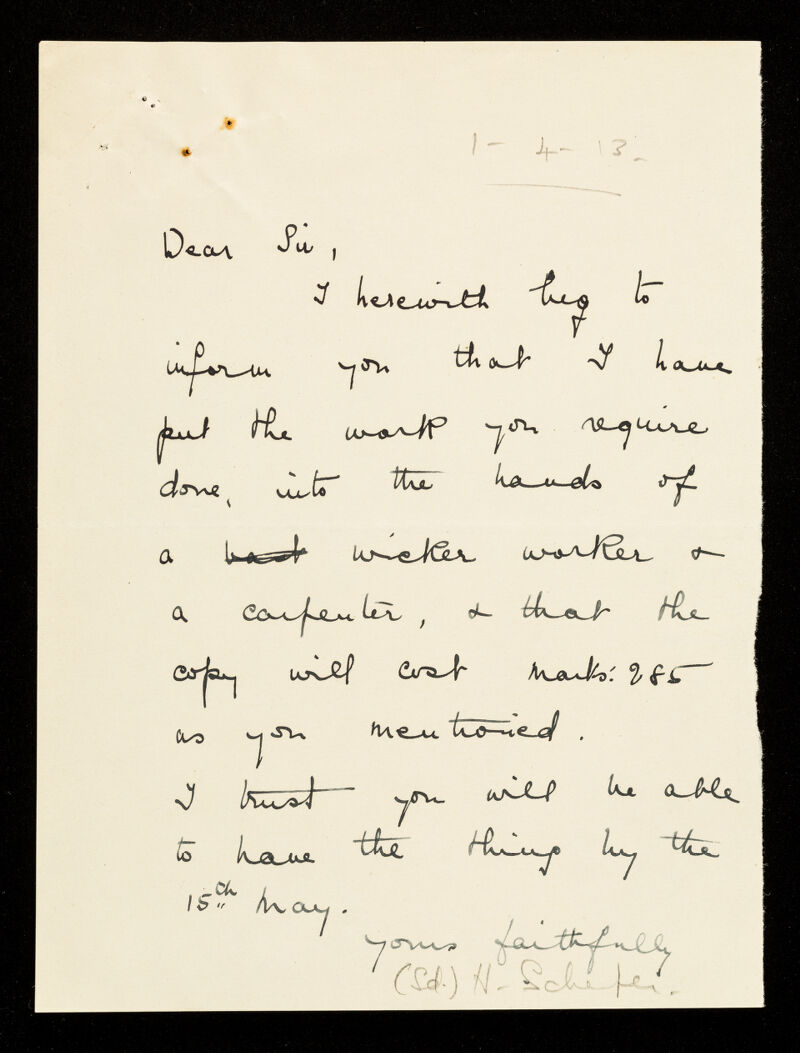 1 - 4 - 13.
Dear Sir,
I herewith beg to
inform you that I have
put the work you require
done, into the hands of
a wicker worker &
a carpenter, & that the
copy will cost Marks: 285
as you mentioned.
I trust you will be able
to have the thing by the
15th May.
yours faithfully
(Sd.) H-